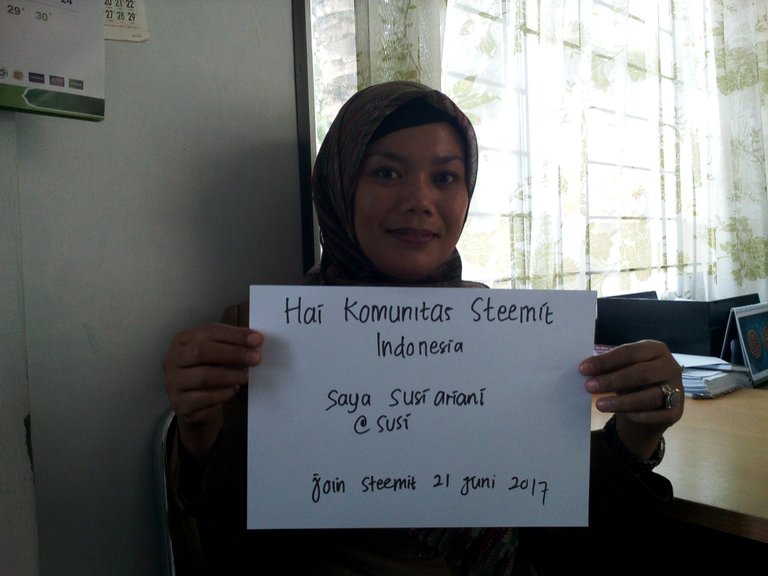 24
29
30
20 21 22
27 28 29
Hai Komunitas Steemit
Indonesia
Saya Susi Ariani
@susi
join steemit 21 juni 2017